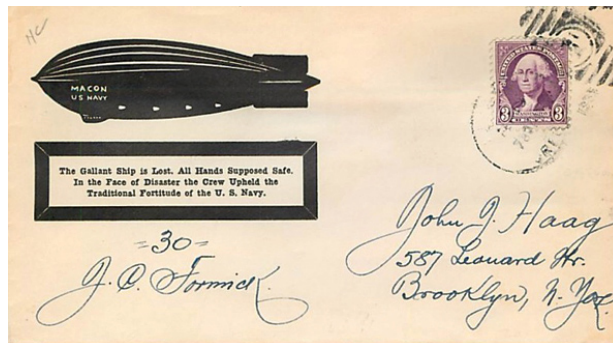 HC
MACON
US NAVY
The Gallant Ship is Lost. All Hands Supposed Safe.
In the Face of Disaster the Crew Upheld the
Traditional Fortitude of the U. S. Navy.
=30=
J. C. Formick.
3 3
John J. Haag
587 Leonard Str.
Brooklyn, N. York.